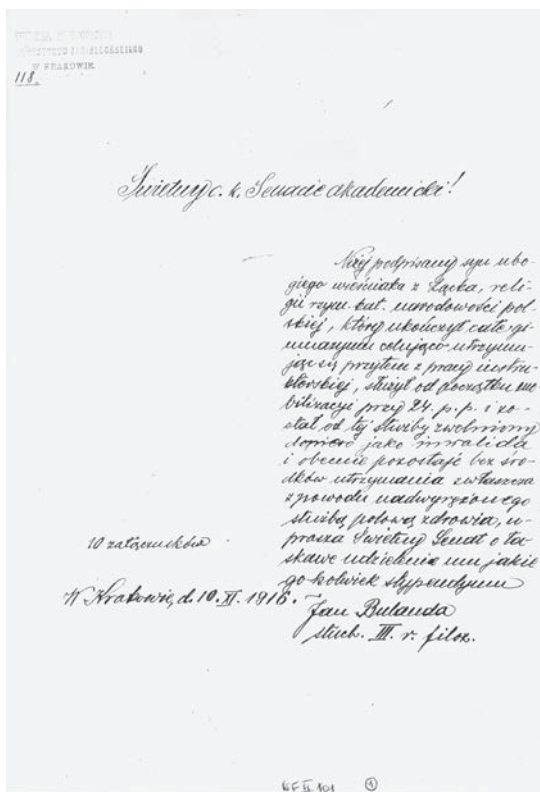 W KRAKOWIE
118.
Świetny c. k. Senacie akademicki!
Niżej podpisany syn ubo-
giego wieśniaka z Łącka, reli-
gii rzym. kat. narodowości pol-
skiej, który ukończył całe gi-
mnazyum celująco utrzymu-
jąc się przytem z pracy instru-
ktorskiej, służył od początku mo-
bilizacyi przy 24. p. p. i zo-
stał od tej służby zwolniony
dopiero jako inwalida
i obecnie pozostaje bez śro-
dków utrzymania zwłaszcza
z powodu nadwyrężonego
służbą polową zdrowia, u-
prasza Świetny Senat o ła-
skawe udzielenie mu jakie
go kolwiek stypendyum
10 załączników
W Krakowie, d. 10. XI. 1916.
Jan Bulanda
słuch. III. r. filoz.
101 1